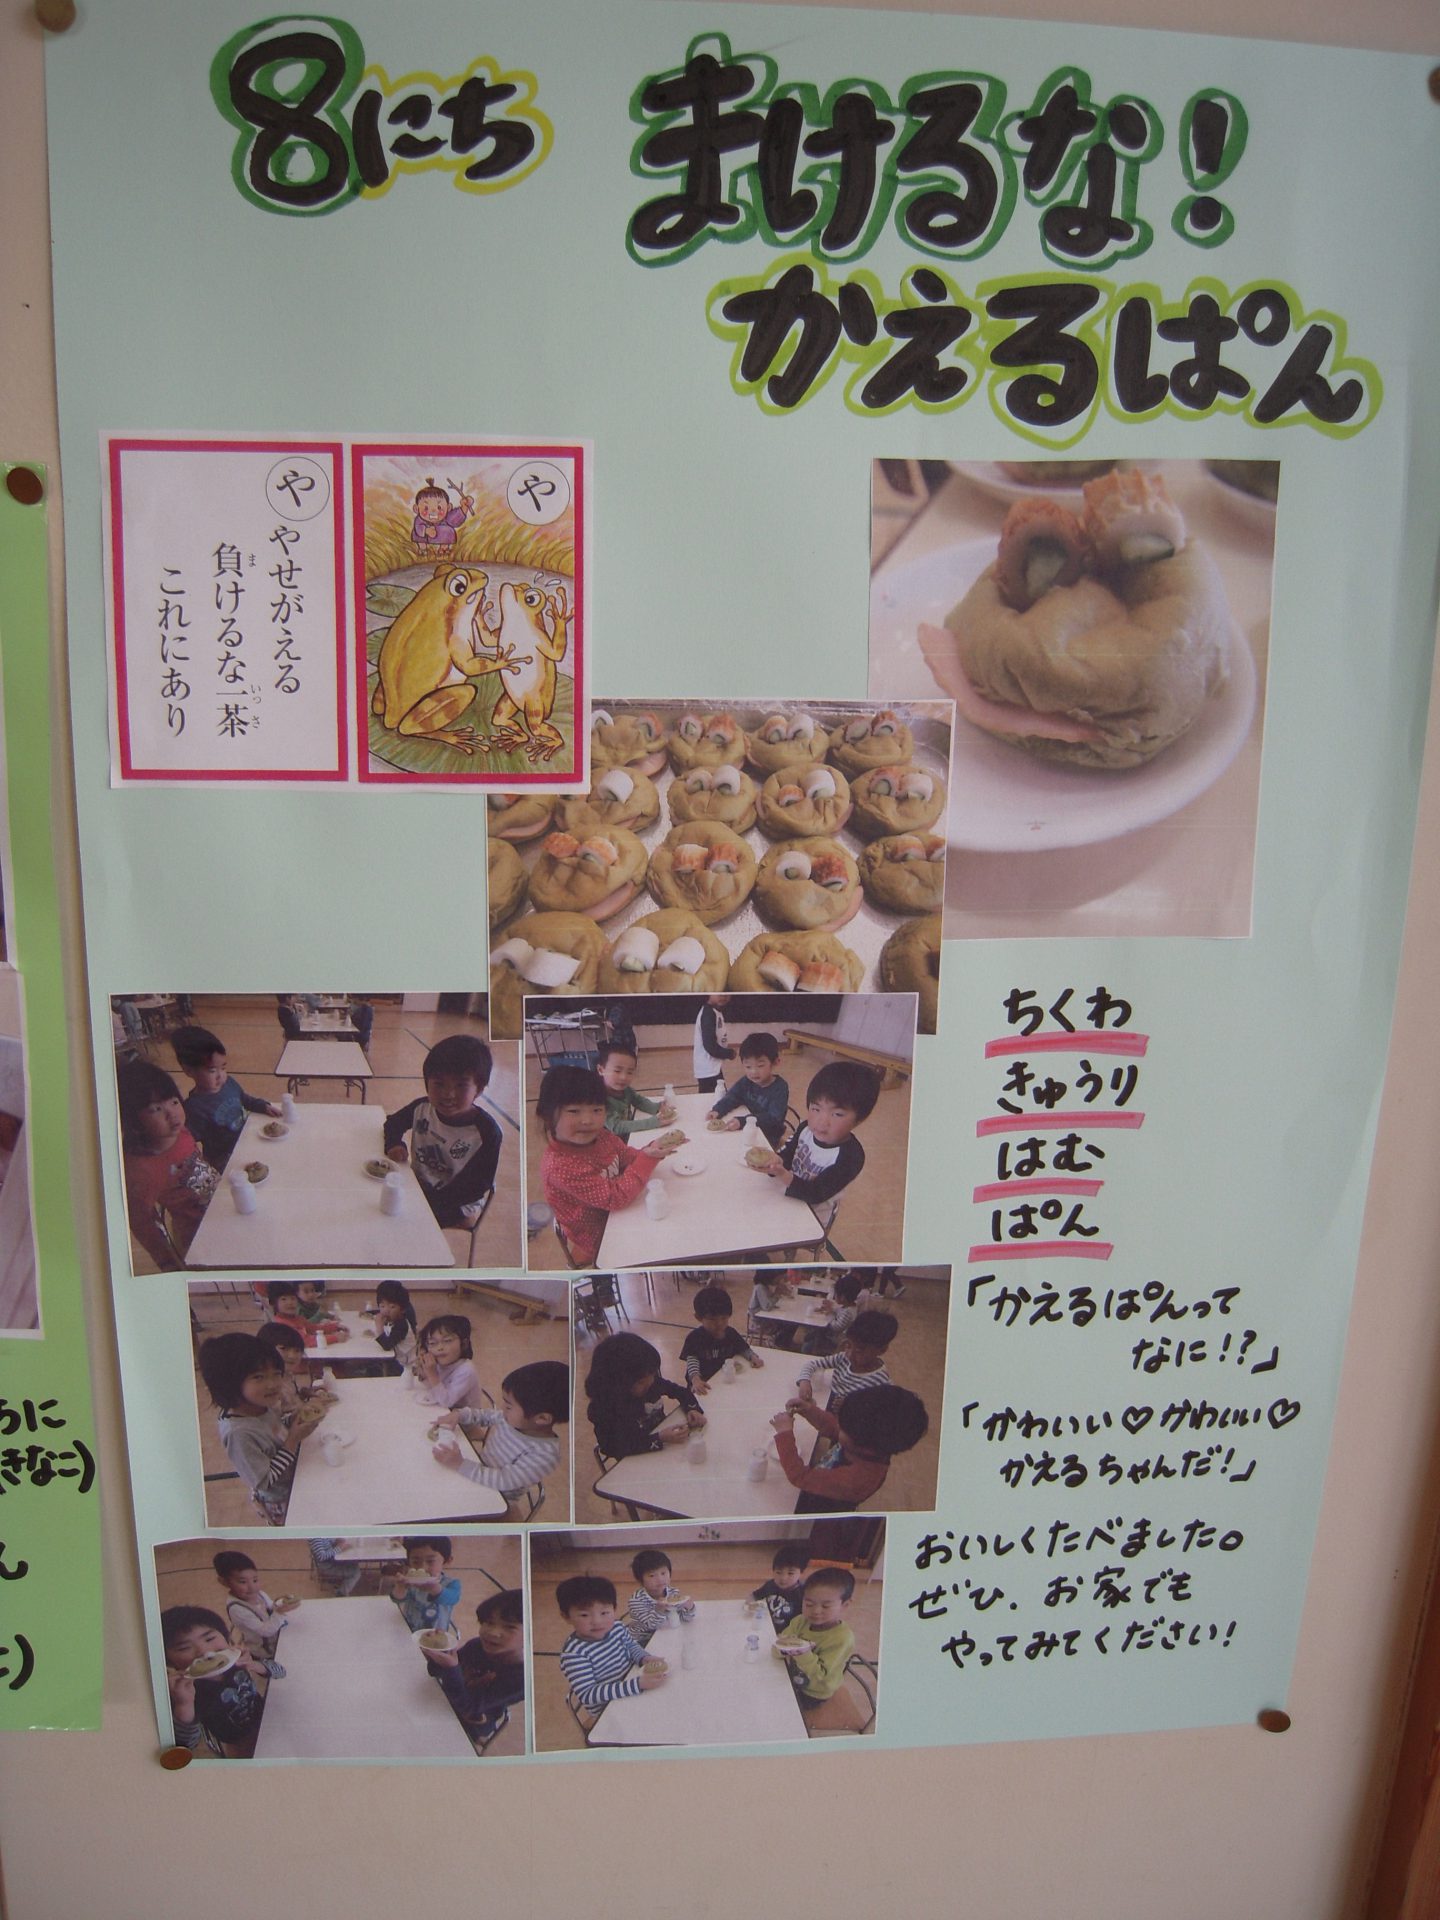 8にち
まけるな!
かえるぱん
や
やせがえる
負けるな一茶
これにあり
ま
いっさ
や
ちくわ
きゅうり
はむ
ぱん
「かえるぱんって
なに!?」
「かわいい♡かわいい♡
かえるちゃんだ!」
おいしくたべました。
ぜひ、お家でも
やってみてください!
きなこ)